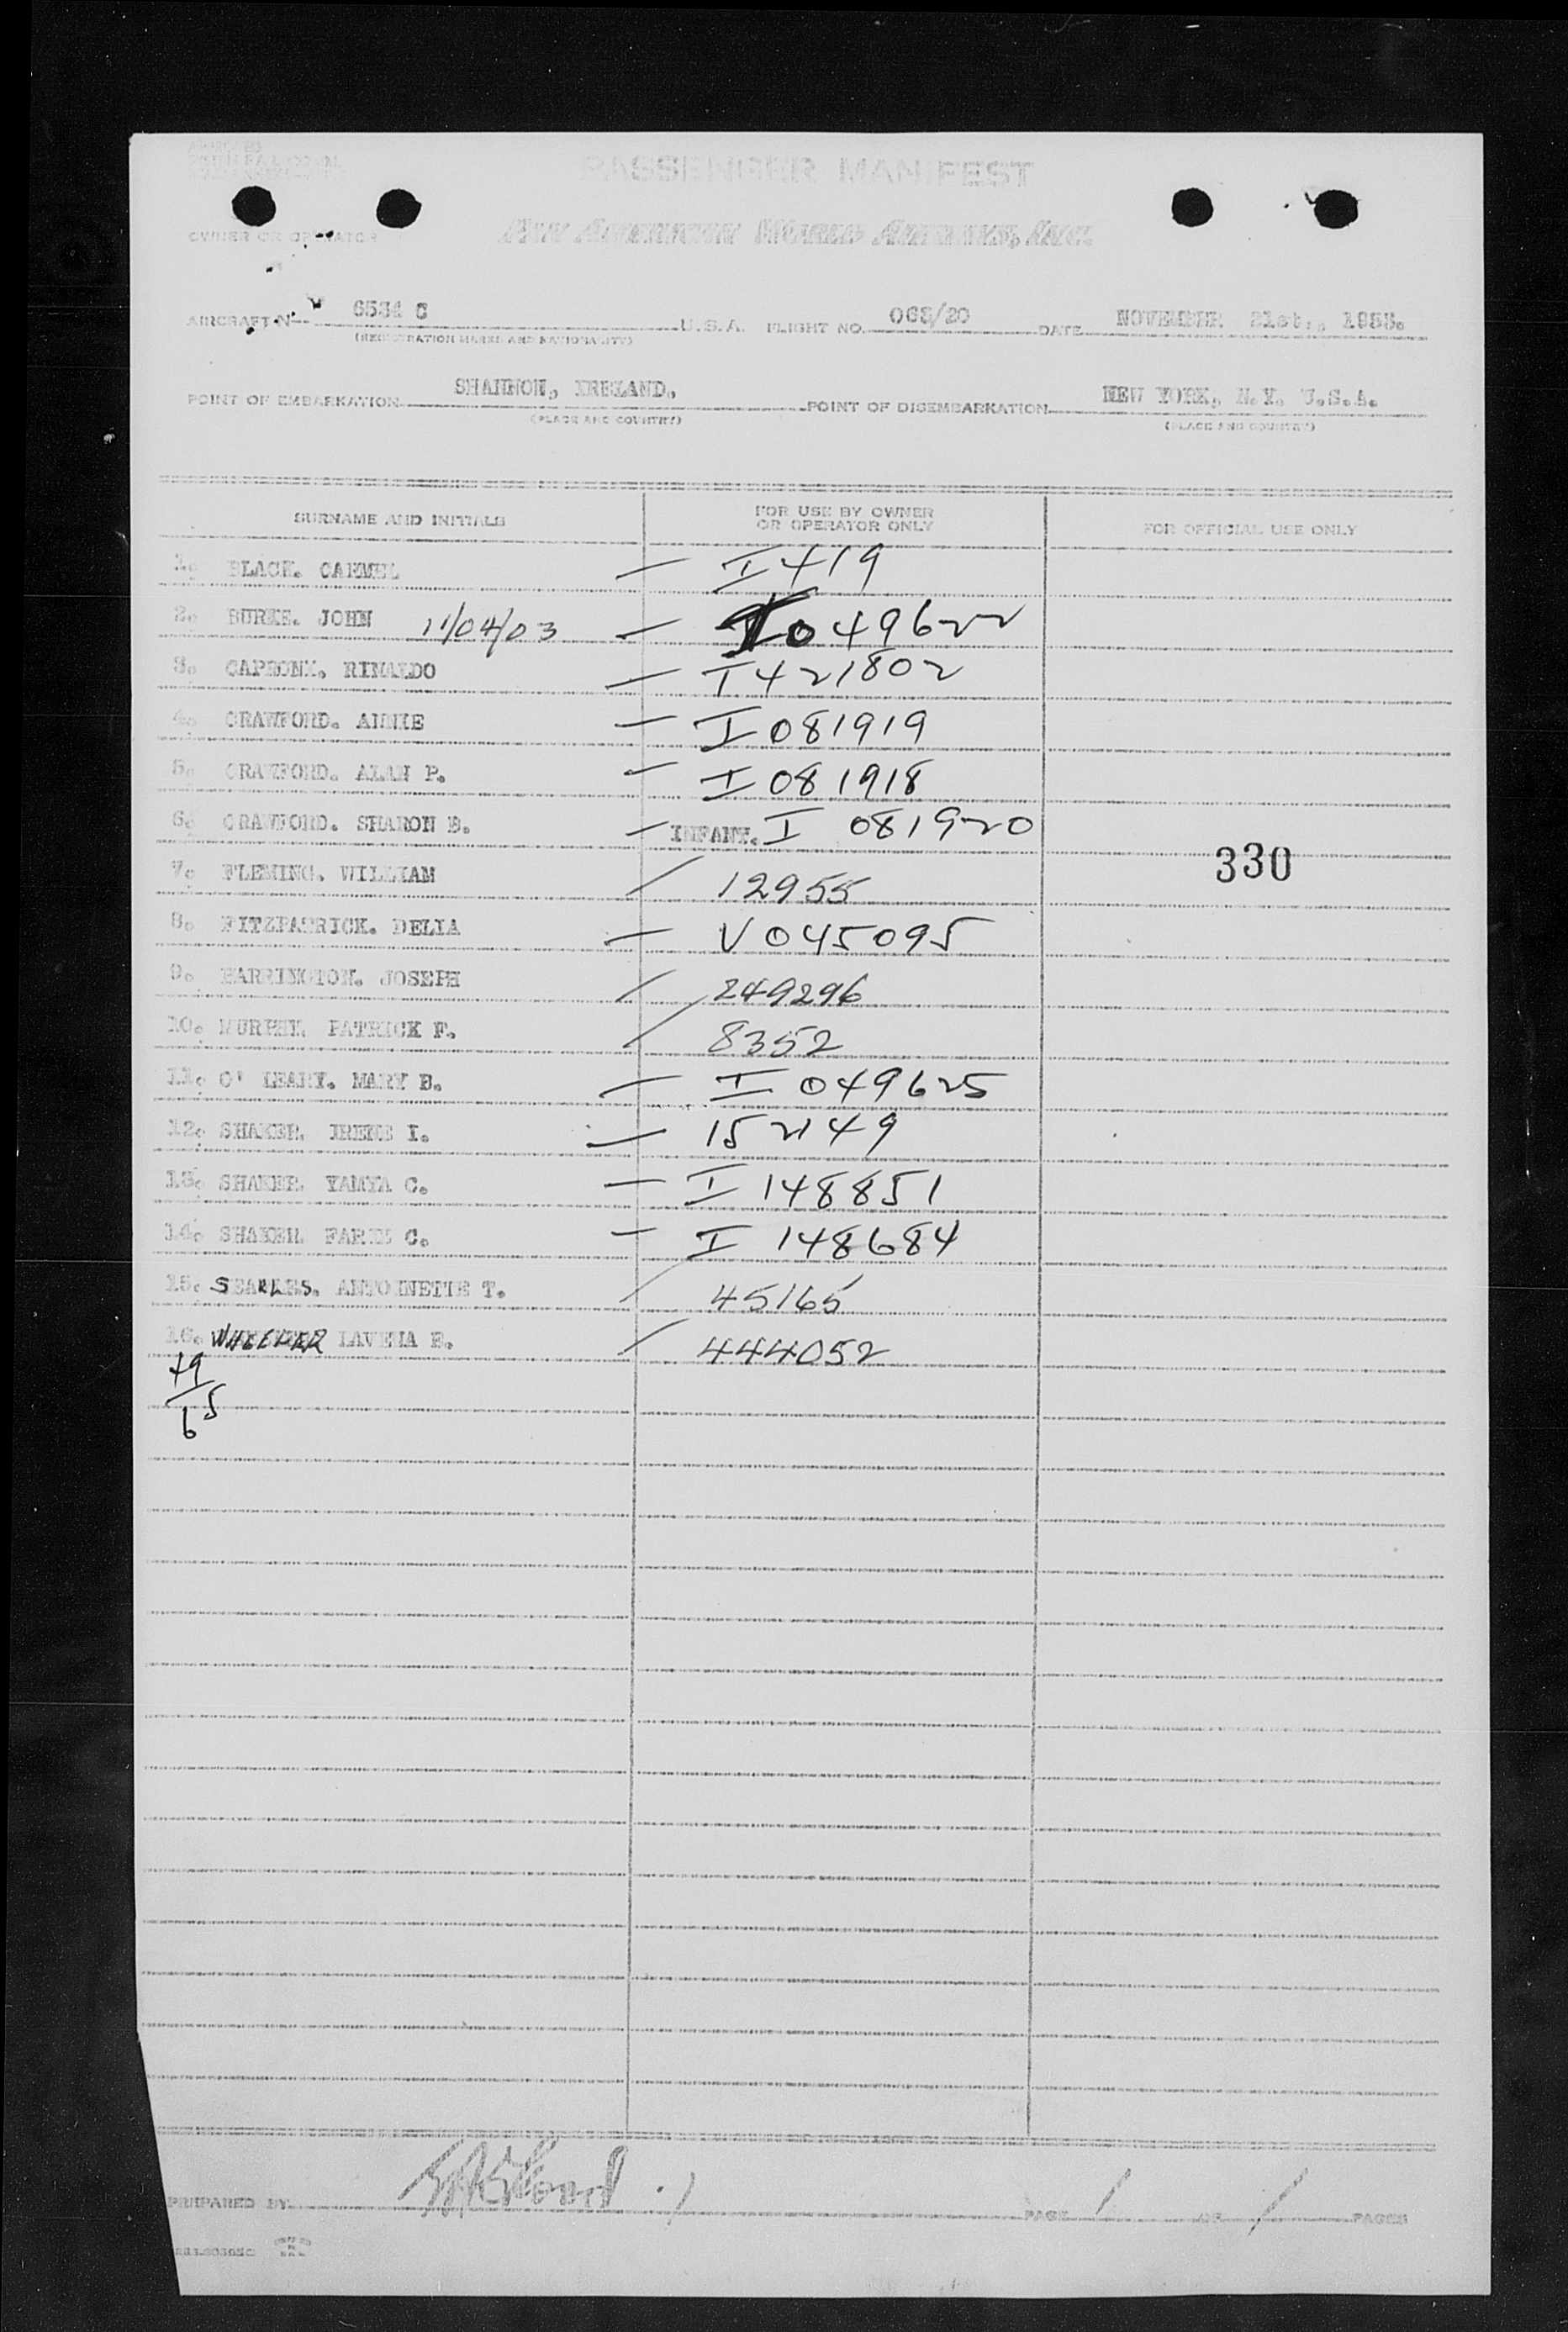 PASSENGER MANIFEST
OWNER OR OPERATOR PAN AMERICAN WORLD AIRWAYS, INC.
AIRCRAFT N- 6534 C U.S.A. FLIGHT NO. DATE NOVEMBER 21st., 1955.
(REGISTRATION MARKS AND NATIONALITY)
POINT OF EMBARKATION SHANNON, IRELAND. POINT OF DISEMBARKATION NEW YORK, N.Y. U.S.A.
(PLACE AND COUNTRY) (PLACE AND COUNTRY)
SURNAME AND INITIALS FOR USE BY OWNER OR OPERATOR ONLY FOR OFFICIAL USE ONLY
1. BLACK. CARMEL — I 419
2. BURKE. JOHN 11/04/03 — I 049622
3. RINALDO — I 421802
4. CRAWFORD. ANNIE — I 081919
5. CRAWFORD. ALAN P. — I 081918
6. CRAWFORD. SHARON B. — INFANT. I 081920
330
7. FLEMING. WILLIAM / 12955
8. FITZPATRICK. DELIA — V 045095
9. HARRINGTON. JOSEPH / 249296
10. MURPHY. PATRICK F. / 8352
11. O' LEARY. MARY B. — I 049625
12. SHAKER. IRENE I. — 152149
13. SHAKER. YAMYA C. — I 148851
14. SHAKER. FARES C. — I 148684
15. SEARLES. ANTOINETTE T. / 45165
16. WHEELER E. / 444052
49
65
PREPARED BY PAGE 1 OF 1 PAGES